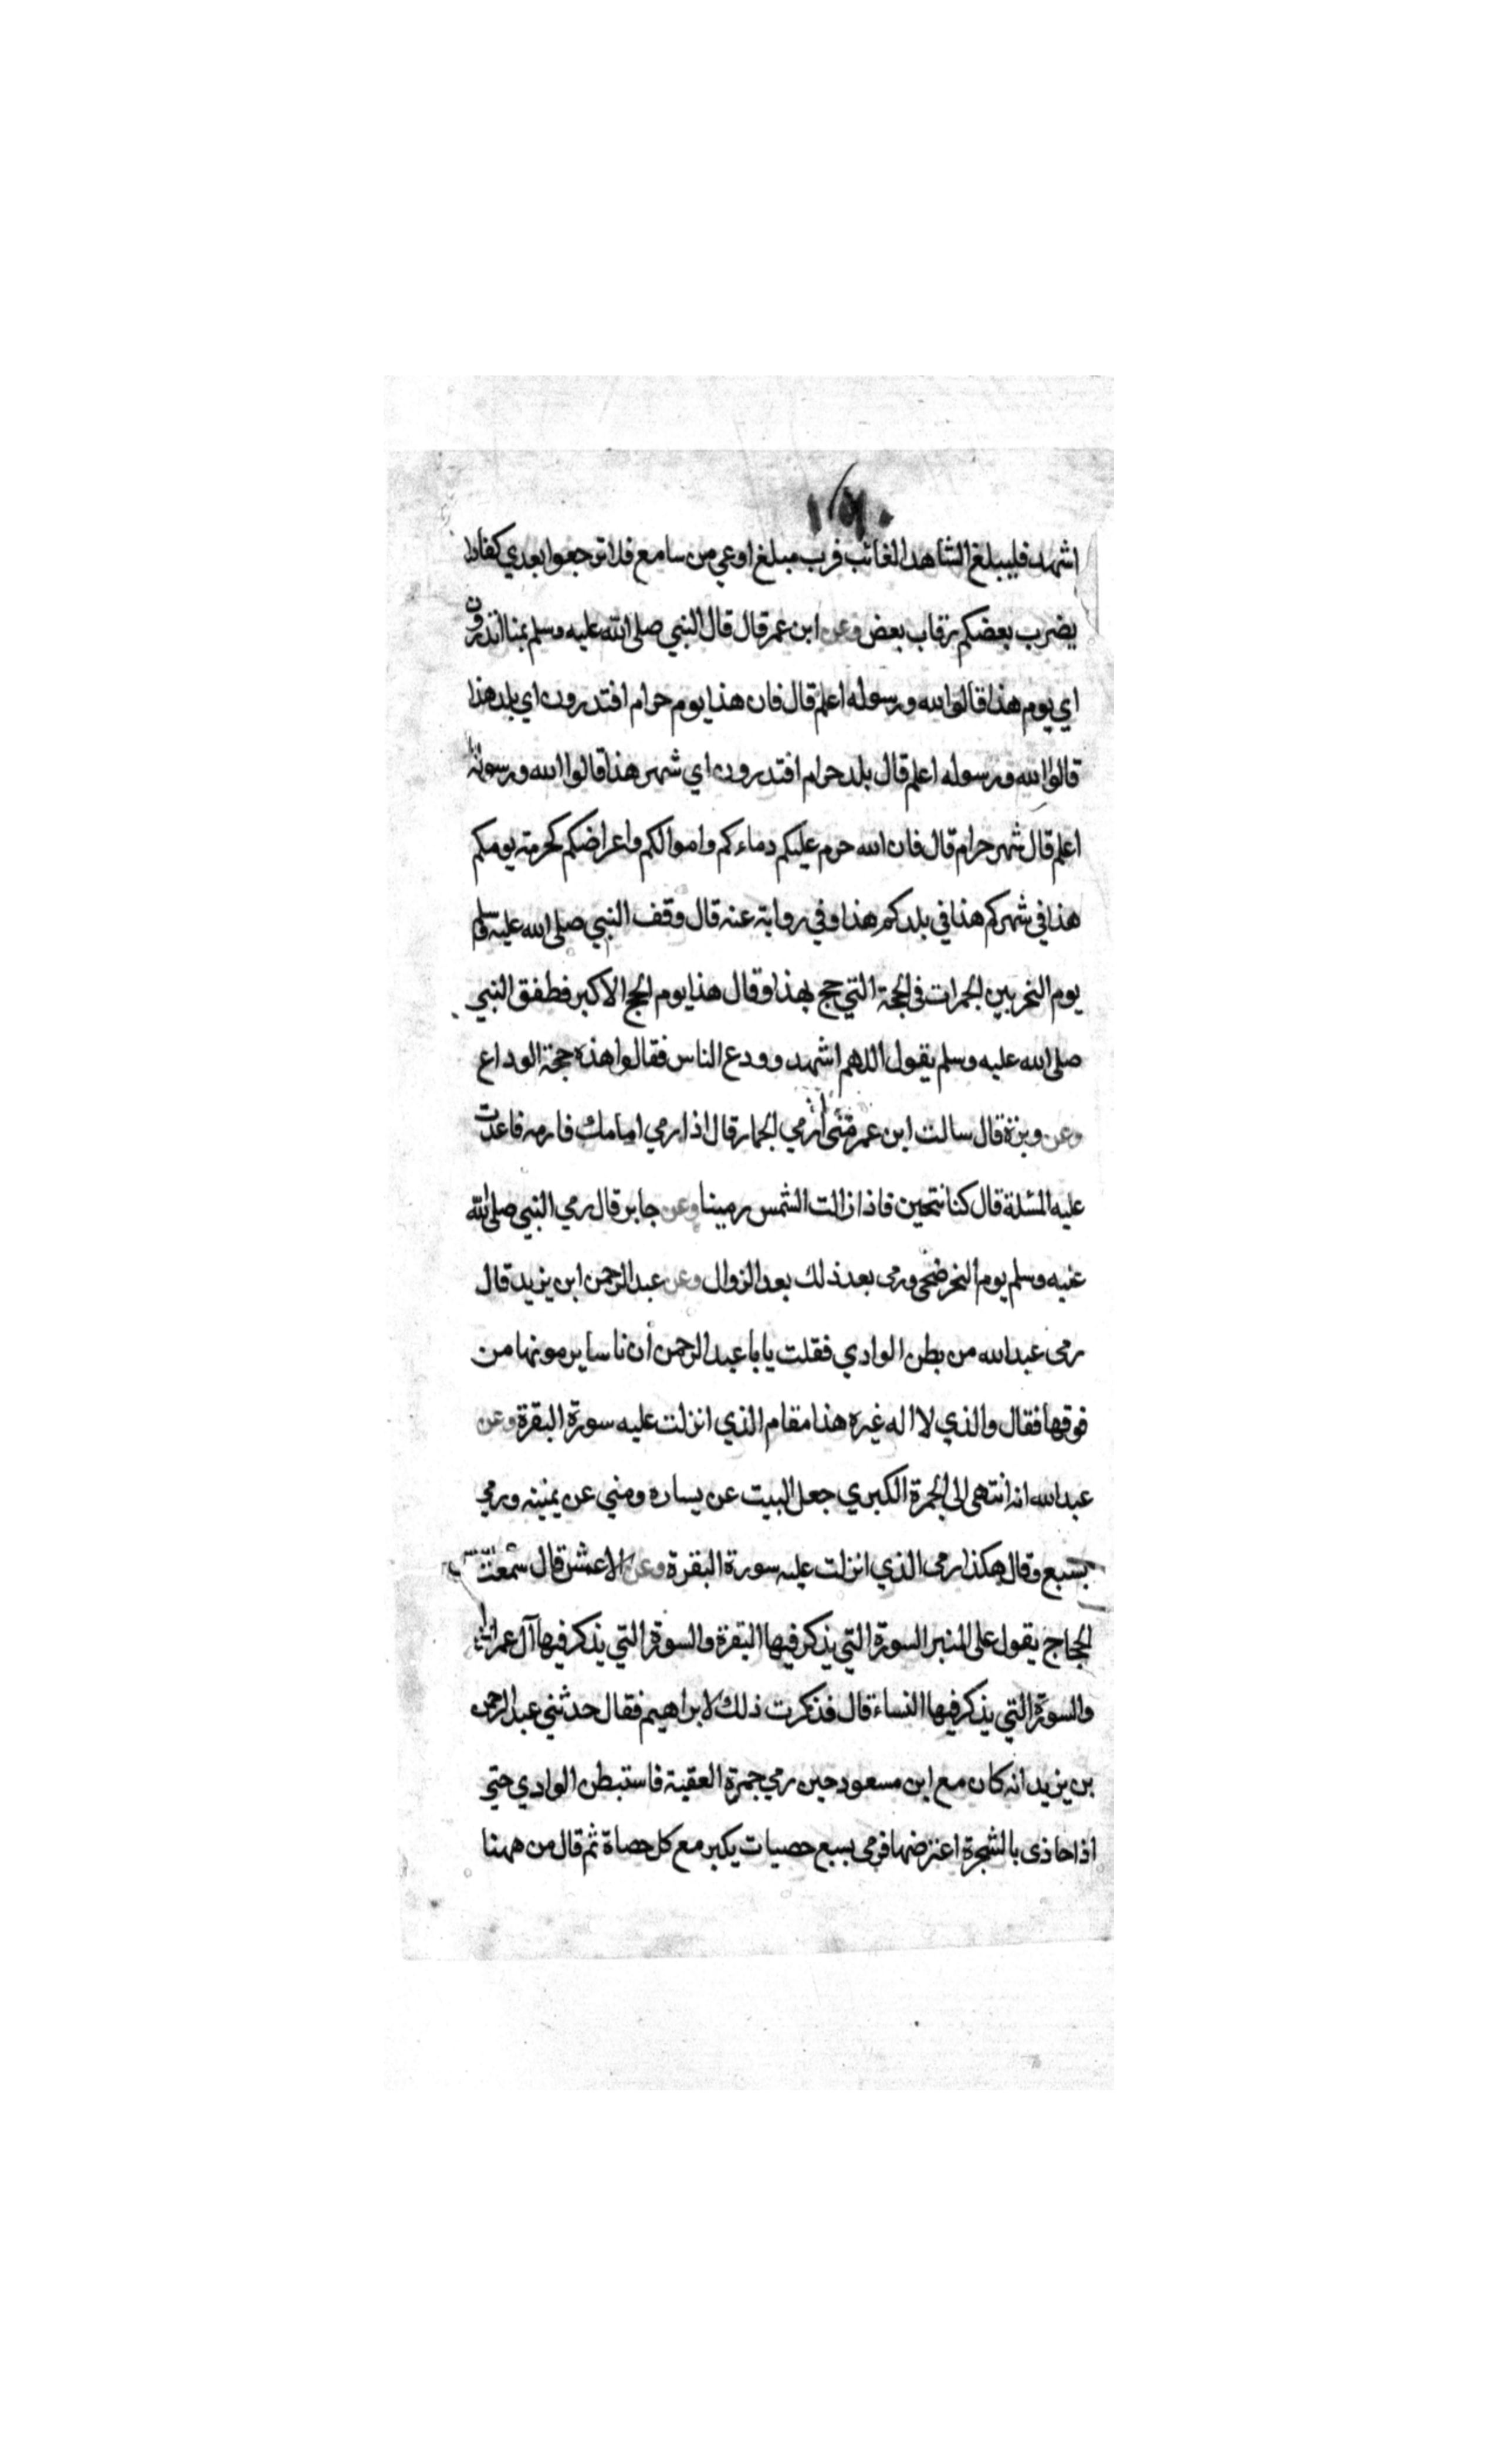 اشهد فليبلغ الشاهد الغائب فرب مبلغ اوعي من سامع فلا ترجعوا بعدي كفارا
يضرب بعضكم رقاب بعض وعن ابن عمر قال قال النبي صلى الله عليه وسلم بمنا اتدرون
اي يوم هذا قالوا الله ورسوله اعلم قال فان هذا يوم حرام افتدرون اي بلد هذا
قالوا الله ورسوله اعلم قال بلد حرام افتدرون اي شهر هذا قالوا الله ورسوله
اعلم قال شهر حرام قال فان الله حرم عليكم دماءكم واموالكم واعراضكم كحرمة يومكم
هذا في شهركم هذا في بلدكم هذا وفي رواية عنه قال وقف النبي صلى الله عليه وسلم
يوم النحر بين الجمرات في الحجة التي حج بهذا وقال هذا يوم الحج الاكبر فطفق النبي
صلى الله عليه وسلم يقول اللهم اشهد وودع الناس فقالوا هذه حجة الوداع
وعن وبرة قال سالت ابن عمر متى ارمي الجمار قال اذا رمي امامك فارمه فاعدت
عليه المسئلة قال كنا نتحين فاذا زالت الشمس رمينا وعن جابر قال رمي النبي صلى الله
عليه وسلم يوم النحر ضحى ورمى بعد ذلك بعد الزوال وعن عبد الرحمن ابن يزيد قال
رمى عبد الله من بطن الوادي فقلت يابا عبد الرحمن ان ناسا يرمونها من
فوقها فقال والذي لا اله غيره هذا مقام الذي انزلت عليه سورة البقرة وعن
عبد الله انه انتهى الى الجمرة الكبرى جعل البيت عن يساره ومني عن يمينه ورمي
بسبع وقال هكذا رمى الذي انزلت عليه سورة البقرة وعن الاعمش قال سمعت
الحجاج يقول على المنبر السورة التي يذكر فيها البقرة والسورة التي يذكر فيها آل عمران
والسورة التي يذكر فيها النساء قال فذكرت ذلك لابراهيم فقال حدثني عبد الرحمن
بن يزيد انه كان مع ابن مسعود حين رمي جمرة العقبة فاستبطن الوادي حتي
اذا حاذى بالشجرة اعترضها فرمى بسبع حصيات يكبر مع كل حصاة ثم قال من ههنا